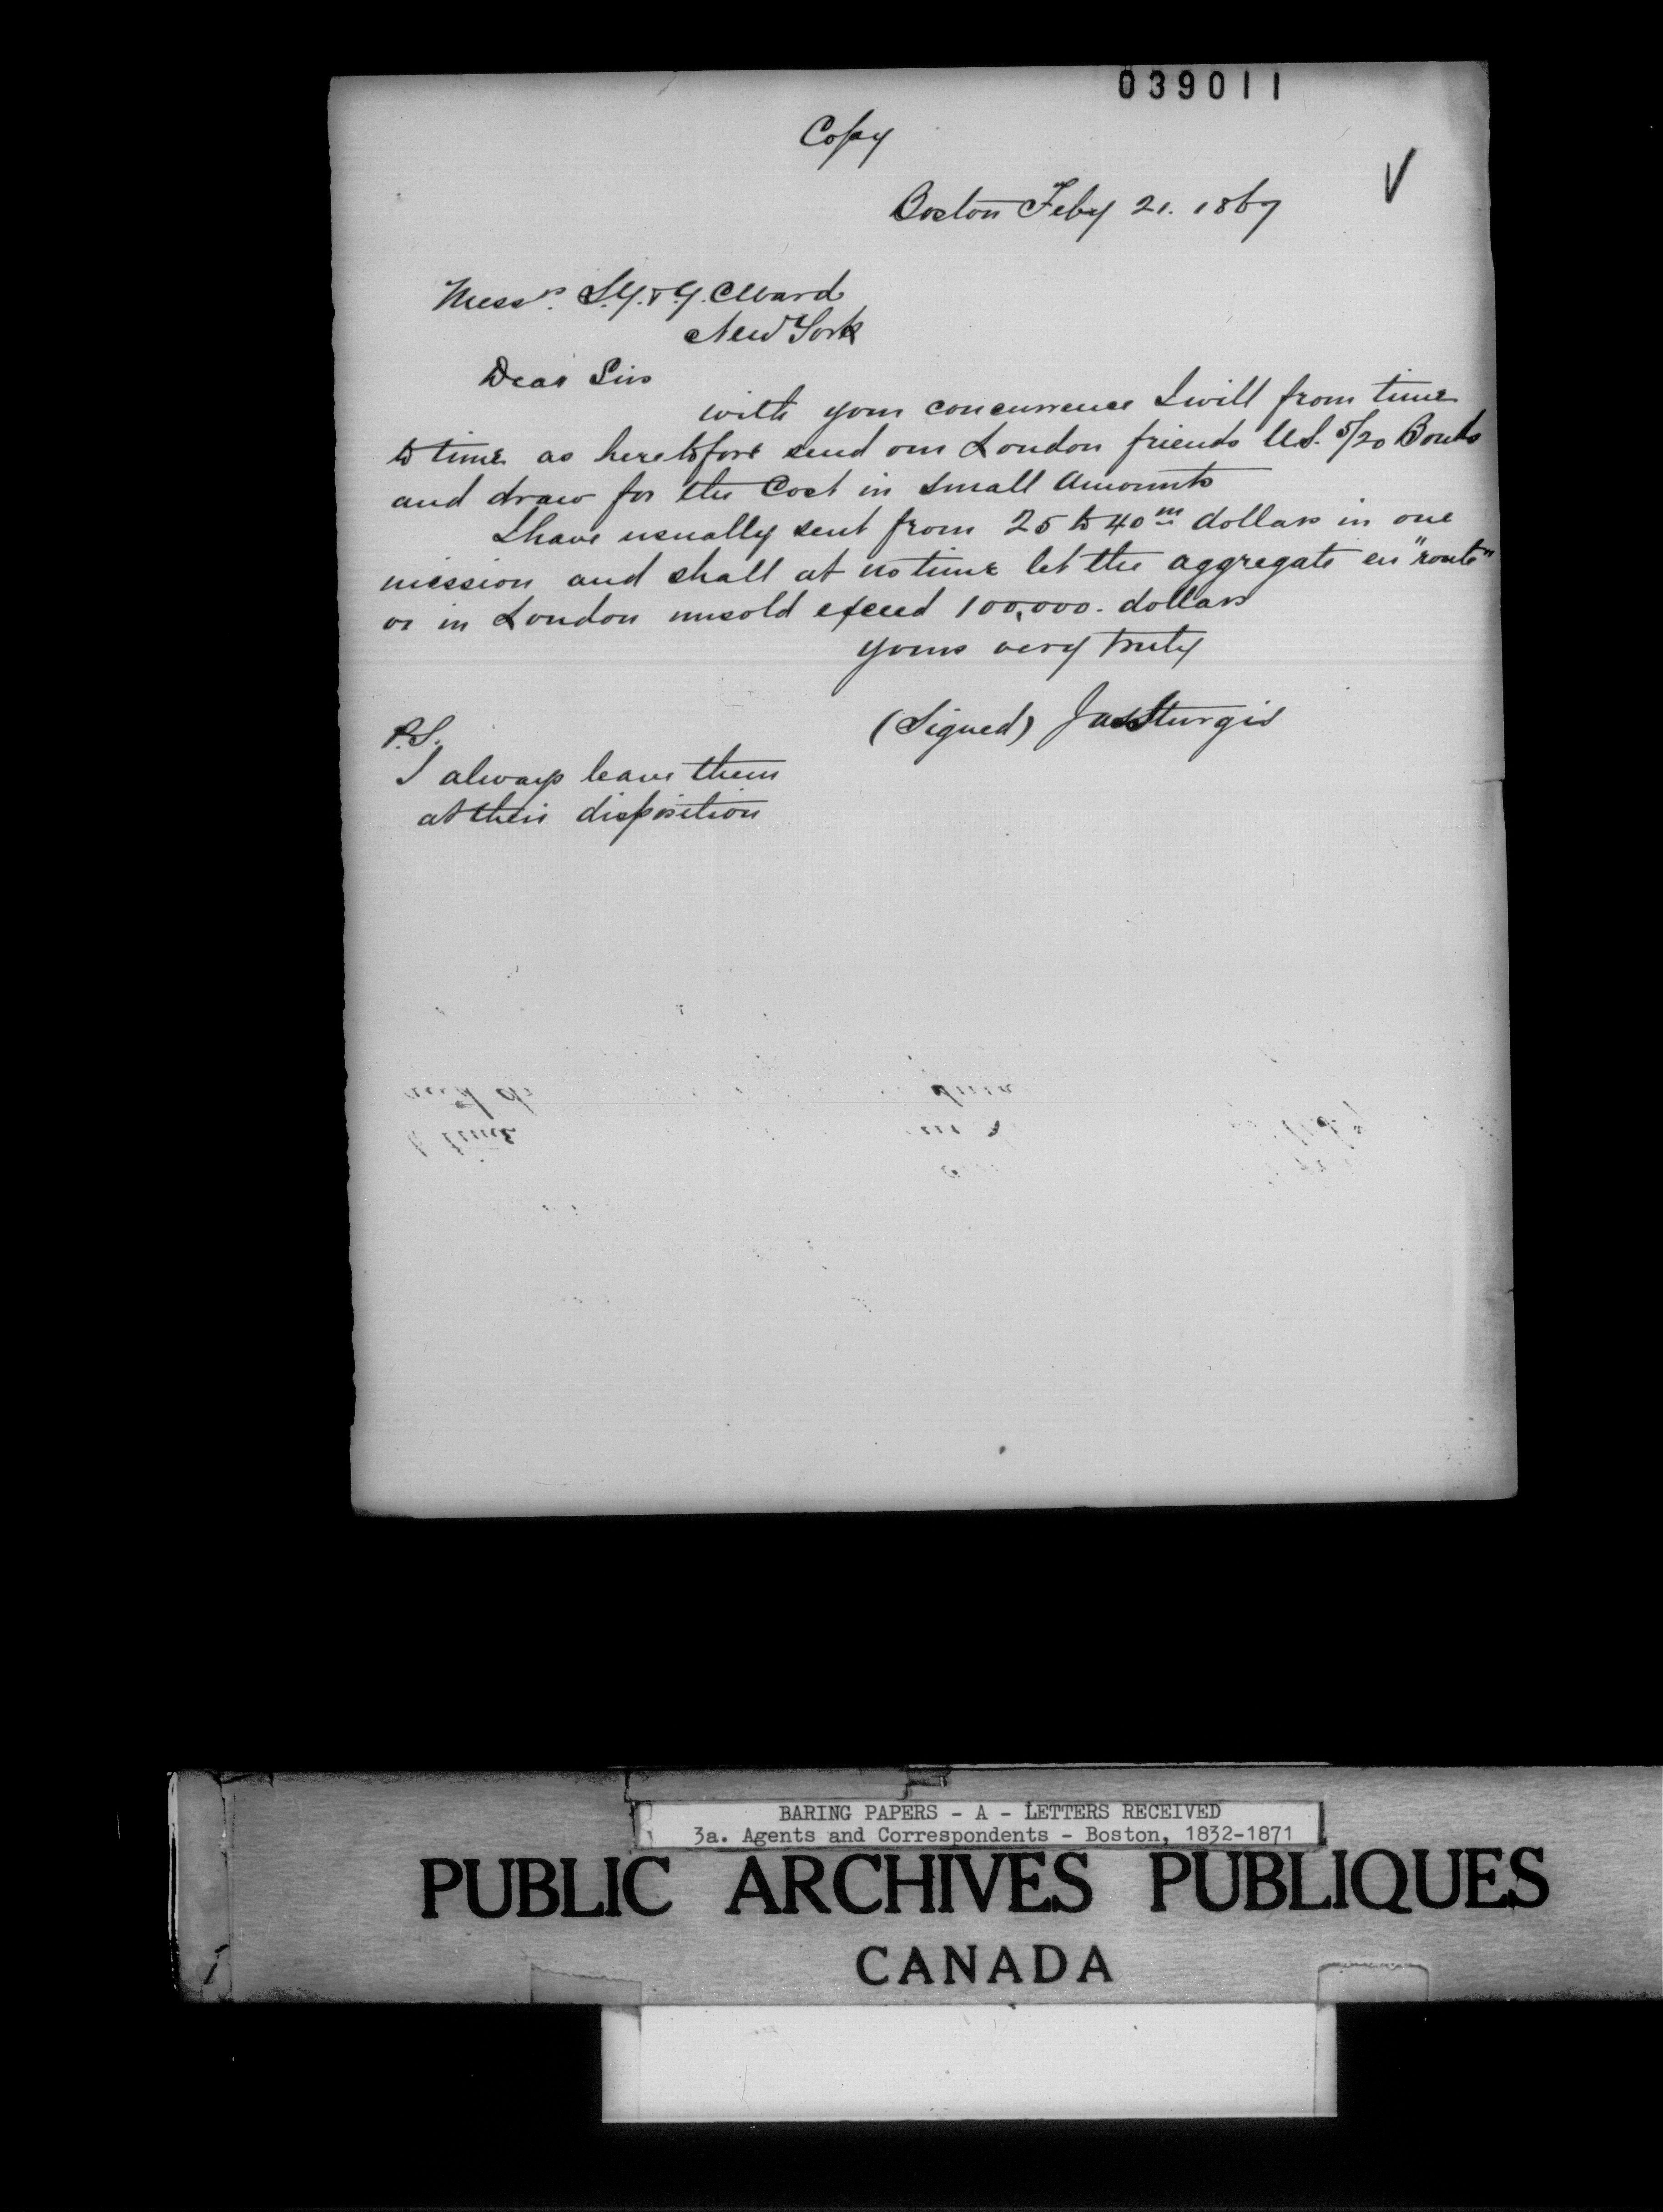 039011
Copy
Boston Feby 21. 1867
Messrs. S.G. & G.C. Ward
New York
Dear Sirs
with your concurrence I will from time
to time as heretofore send our London friends U.S. 5/20 Bonds
and draw for the Cost in small amounts
I have usually sent from 25 to 40m dollars in one
mission and shall at no time let the aggregate en "route"
or in London unsold exceed 100,000. dollars
yours very truly
(Signed) Jas Sturgis
P.S.
I always leave them
at their disposition
BARING PAPERS - A - LETTERS RECEIVED
3a. Agents and Correspondents - Boston, 1832-1871
PUBLIC ARCHIVES PUBLIQUES
CANADA